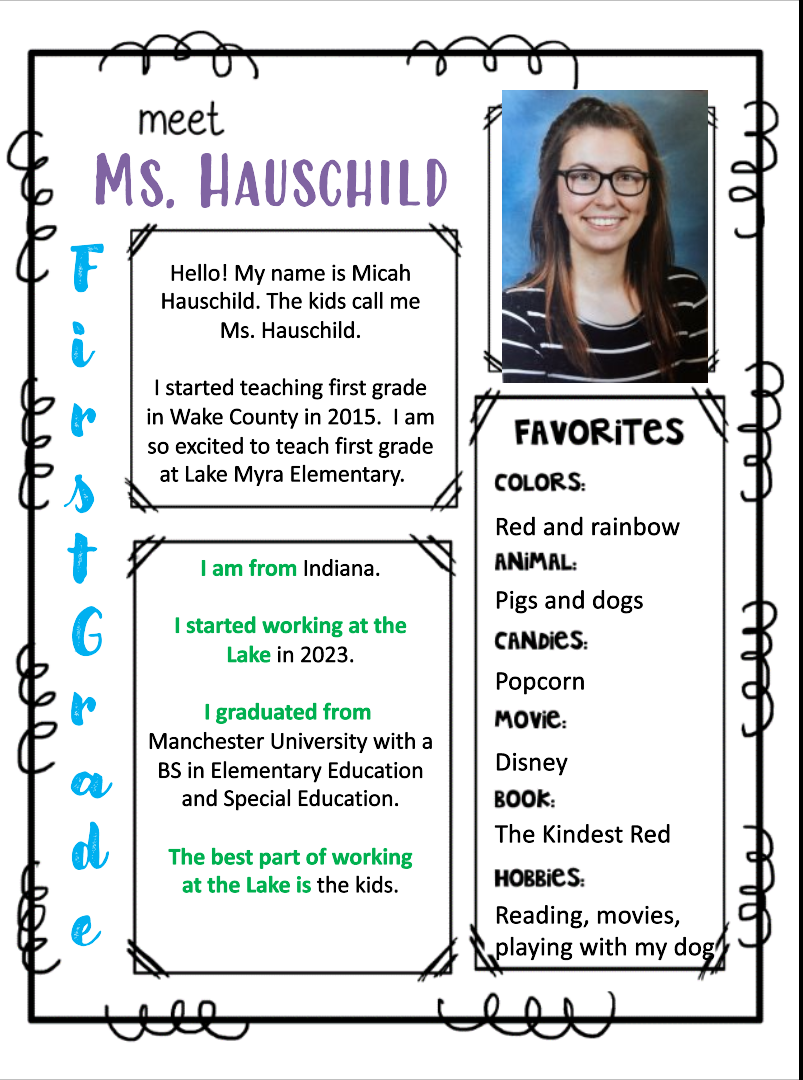 meet
Ms. Hauschild
First Grade
Hello! My name is Micah
Hauschild. The kids call me
Ms. Hauschild.
I started teaching first grade
in Wake County in 2015. I am
so excited to teach first grade
at Lake Myra Elementary.
I am from Indiana.
I started working at the
Lake in 2023.
I graduated from
Manchester University with a
BS in Elementary Education
and Special Education.
The best part of working
at the Lake is the kids.
FAVORiTES
COLORS:
Red and rainbow
ANiMAL:
Pigs and dogs
CANDiES:
Popcorn
MOViE:
Disney
BOOK:
The Kindest Red
HOBBiES:
Reading, movies,
playing with my dog